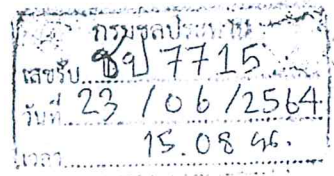 กรมชลประทาน
เลขรับ ชป 7715
วันที่ 23 / 06 / 2564
เวลา 15.08 น.